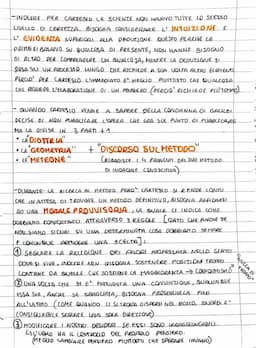 -INOLTRE PER CARTESIO LE SCIENZE NON HANNO TUTTE LO STESSO
LIVELLO DI CERTEZZA. BISOGNA CONSIDERARE L'INTUIZIONE E
L'EVIDENZA SUPERIORI ALLA DEDUZIONE. QUESTO PERCHÉ LE
PRIME SI BASANO SU QUALCOSA DI PRESENTE, NON HANNO BISOGNO
DI ALTRO PER COMPRENDERE UN QUALCOSA, MENTRE LA DEDUZIONE SI
BASA SU UN PROCESSO LUNGO CHE RICHIEDE A SUA VOLTA ALTRI ELEMENTI
PERCIÒ PER CARTESIO L'IMMEDIATO È MEGLIO PIUTTOSTO CHE QUALCOSA
CHE RICHIEDE L'ELABORAZIONE DI UN PENSIERO (PERCIÒ RICHIEDE PIÙ TEMPO)
- QUANDO CARTESIO VIENE A SAPERE DELLA CONDANNA DI GALILEI
DECISE DI NON PUBBLICARE L'OPERA CHE ERA SUL PUNTO DI PUBBLICARE
MA LA DIVISE IN 3 PARTI + 1
• LA "DIOTTRICA"
• LA "GEOMETRIA" + "DISCORSO SUL METODO"
• LE "METEORE" (RIASSUME I 4 PRINCIPI DEL SUO METODO
DI INDAGINE CONOSCITIVA)
-DURANTE LA RICERCA DEL METODO PERÒ CARTESIO SI RENDE CONTO
CHE IN ATTESA DI TROVARE UN METODO DEFINITIVO, BISOGNA AFFIDARSI
AD UNA MORALE PROVVISORIA, LA QUALE CI INDICA COME
DOBBIAMO COMPORTARCI ATTRAVERSO 3 REGOLE (DATO CHE ANCHE SE
NON SIAMO SICURI SU UNA DETERMINATA COSA DOBBIAMO SEMPRE
E COMUNQUE PRENDERE UNA SCELTA):
① SEGUIRE LA RELIGIONE DEI VALORI PROFESSATA NELLO STATO
DOVE SI VIVE, INOLTRE NON BISOGNA SOSTENERE POSIZIONI TROPPO
LONTANE DA QUELLE CHE SOSTIENE LA MAGGIORANZA → CONFORMISMO
② UNA VOLTA CHE SI È INTRAPRESA UNA CONVINZIONE, QUALUNQUE
ESSA SIA, ANCHE SE SBAGLIATA, BISOGNA PROSEGUIRLA FINO
ALL'ULTIMO (COME QUANDO CI SI TROVA DISPERSI NEL BOSCO, QUANDO È
CONSIGLIABILE SEGUIRE UNA SOLA DIREZIONE)
③ MODIFICARE I NOSTRI DESIDERI SE ESSI SONO IRRAGGIUNGIBILI
L'UOMO HA IL CONTROLLO DEL PROPRIO PENSIERO
(MEGLIO CAMBIARE PENSIERO PIUTTOSTO CHE SPERARE INVANO)